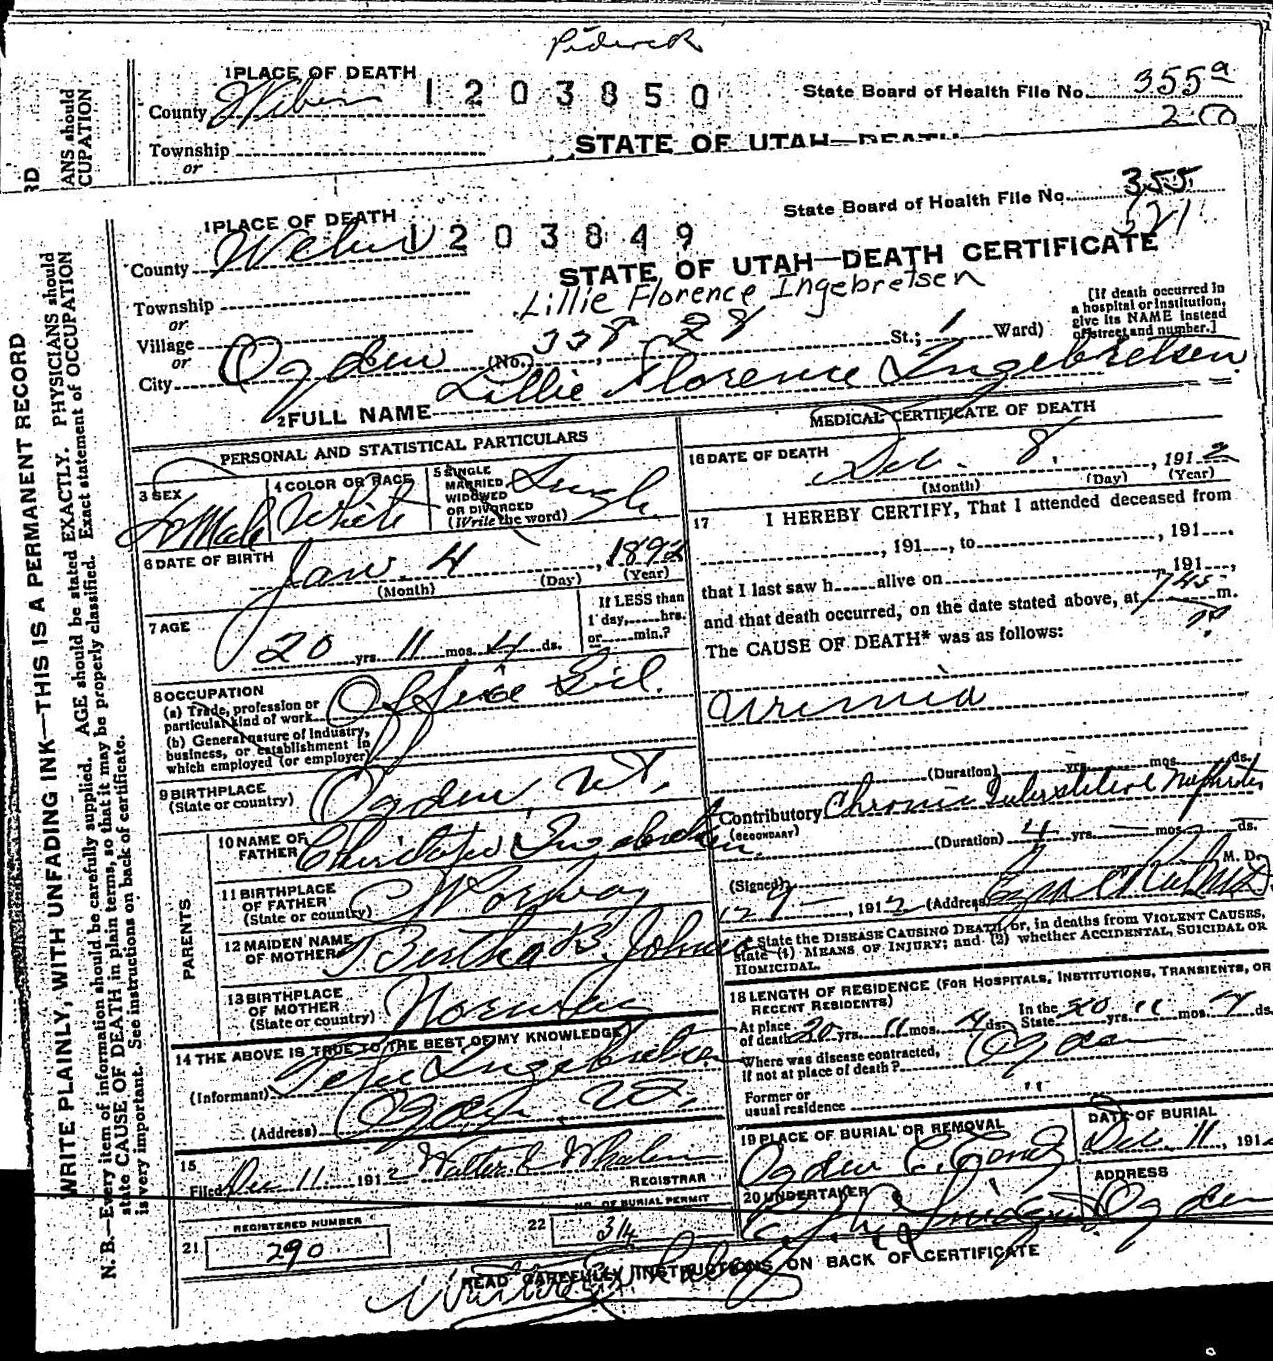 1 PLACE OF DEATH
County Weber
1203850
State Board of Health File No. 355a
Township
or
STATE OF UTAH—DEATH
RD
ANS should
CUPATION
1 PLACE OF DEATH
County Weber
1203849
State Board of Health File No. 355
521
STATE OF UTAH—DEATH CERTIFICATE
Lillie Florence Ingebretsen
Township
or
Village
or
City Ogden (No. 338 - 28 St.; 1 Ward)
[If death occurred in
a hospital or institution,
give its NAME instead
of street and number.]
2 FULL NAME Lillie Florence Ingebretsen
PERSONAL AND STATISTICAL PARTICULARS
3 SEX
4 COLOR OR RACE White
5 SINGLE
MARRIED
WIDOWED
OR DIVORCED
(Write the word)
Single
6 DATE OF BIRTH
Jan. 4, 1892
(Month) (Day) (Year)
7 AGE
20 yrs. 11 mos. 4 ds.
If LESS than
1 day, hrs.
or min.?
8 OCCUPATION
(a) Trade, profession or
particular kind of work Office Girl.
(b) General nature of Industry,
business, or establishment in
which employed (or employer)
9 BIRTHPLACE
(State or country) Ogden, Ut.
PARENTS
10 NAME OF
FATHER Ingebretsen
11 BIRTHPLACE
OF FATHER
(State or country) Norway
12 MAIDEN NAME
OF MOTHER Bertha B. Johns
13 BIRTHPLACE
OF MOTHER
(State or country) Norway
14 THE ABOVE IS TRUE TO THE BEST OF MY KNOWLEDGE
(Informant) Ingebretsen
(Address) Ogden, Ut.
15
Filed Dec 11 1912 Walter E Whalen
REGISTRAR
REGISTERED NUMBER
21 290
NO. OF BURIAL PERMIT
22 314
MEDICAL CERTIFICATE OF DEATH
16 DATE OF DEATH
Dec. 8, 1912
(Month) (Day) (Year)
17 I HEREBY CERTIFY, That I attended deceased from
, 191 , to , 191 .
that I last saw h alive on , 191 ,
and that death occurred, on the date stated above, at 745 m.
The CAUSE OF DEATH* was as follows:
Uremia
(Duration) yrs. mos. ds.
Contributory Chronic Interstitial Nephritis
(SECONDARY)
(Duration) 4 yrs. — mos. — ds.
(Signed) M. D.
12 9 — , 1912 (Address)
* State the DISEASE CAUSING DEATH, or, in deaths from VIOLENT CAUSES,
state (1) MEANS OF INJURY; and (2) whether ACCIDENTAL, SUICIDAL OR
HOMICIDAL.
18 LENGTH OF RESIDENCE (FOR HOSPITALS, INSTITUTIONS, TRANSIENTS, OR
RECENT RESIDENTS)
At place
of death 20 yrs. 11 mos. 4 ds. In the
State 20 yrs. 11 mos. 4 ds.
Where was disease contracted,
if not at place of death? Ogden
Former or
usual residence "
19 PLACE OF BURIAL OR REMOVAL
Ogden
DATE OF BURIAL
Dec. 11, 191
20 UNDERTAKER
ADDRESS
Ogden
READ CAREFULLY INSTRUCTIONS ON BACK OF CERTIFICATE
WRITE PLAINLY, WITH UNFADING INK—THIS IS A PERMANENT RECORD
N. B.—Every item of information should be carefully supplied. AGE should be stated EXACTLY. PHYSICIANS should
state CAUSE OF DEATH in plain terms, so that it may be properly classified. Exact statement of OCCUPATION
is very important. See instructions on back of certificate.